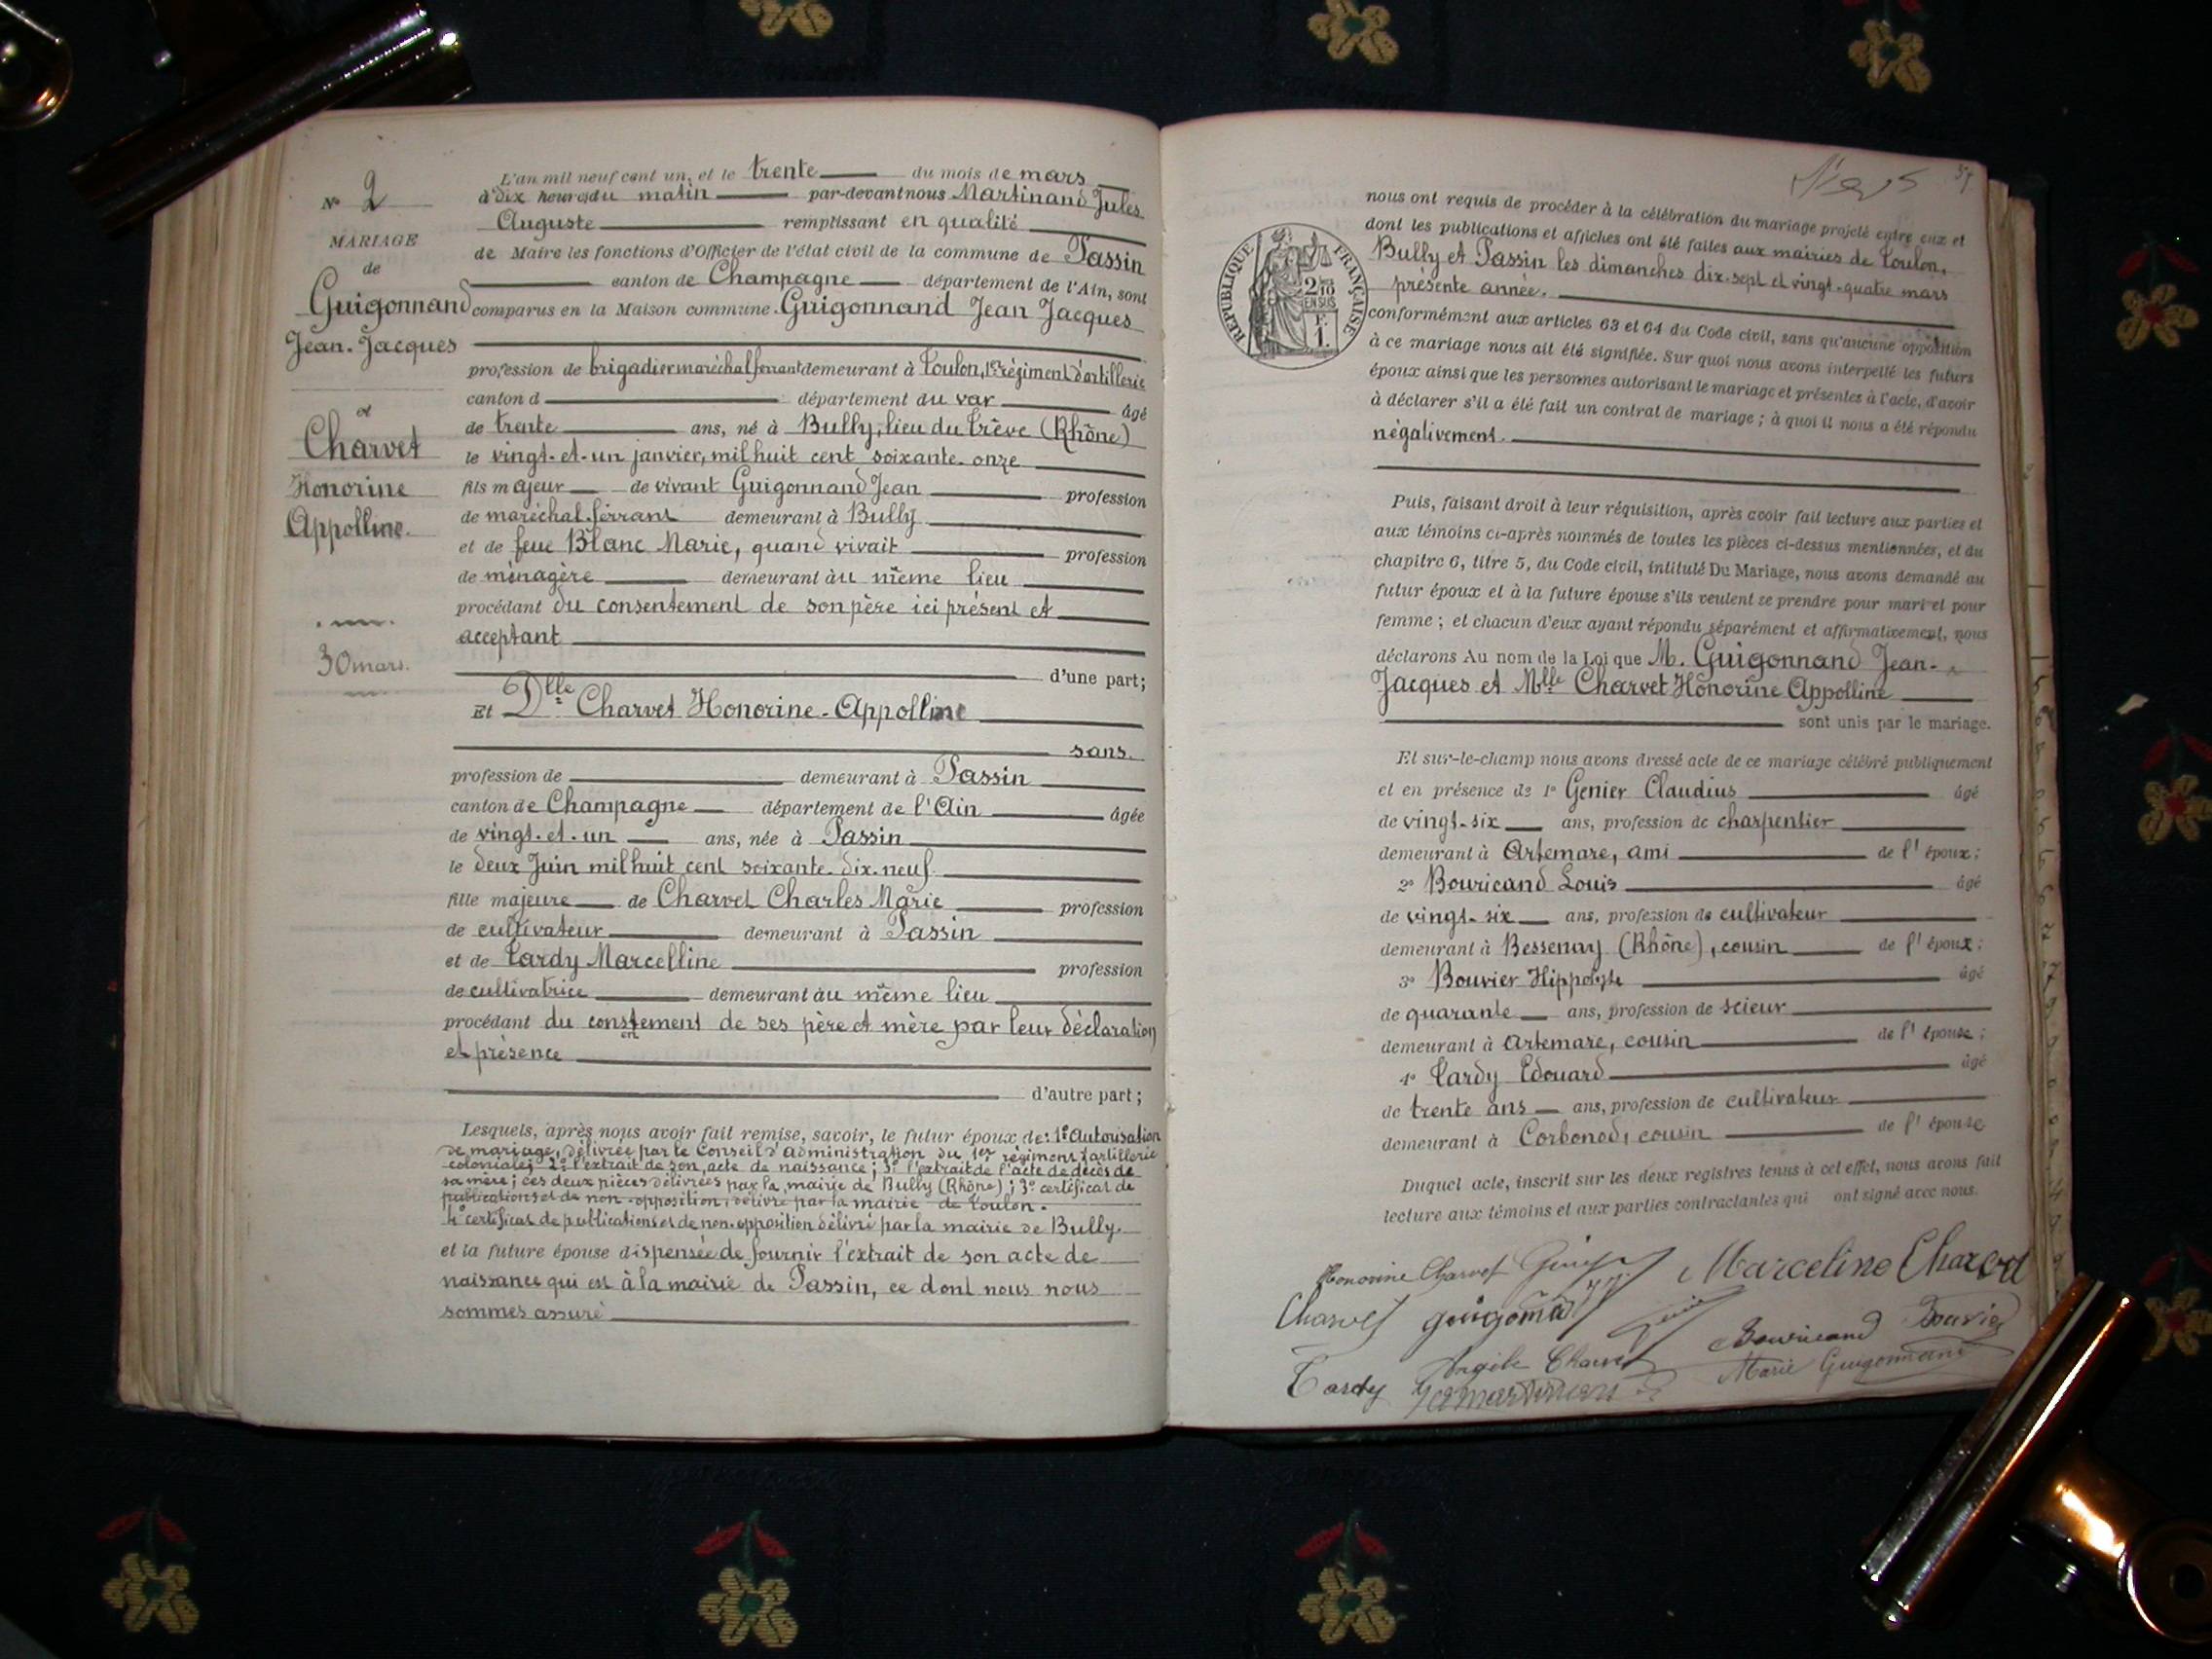 N° 2
MARIAGE
de
Guigonnand
Jean-Jacques
et
Charvet
Honorine
Appolline.
30 mars.
L'an mil neuf cent un, et le trente du mois de mars
à dix heures du matin par-devant nous Martinand Jules
Auguste remplissant en qualité
de Maire les fonctions d'Officier de l'état civil de la commune de Passin
canton de Champagne département de l'Ain, sont
comparus en la Maison commune. Guigonnand Jean Jacques
profession de brigadier maréchal ferrant demeurant à Toulon, 1er régiment d'artillerie
canton d département du var âgé
de trente ans, né à Bully, lieu du Trève (Rhône)
le vingt-et-un janvier, mil huit cent soixante-onze
fils majeur de vivant Guigonnand Jean profession
de maréchal-ferrant demeurant à Bully
et de feue Blanc Marie, quand vivait profession
de ménagère demeurant au même lieu
procédant du consentement de son père ici présent et
acceptant
d'une part;
Et Dlle Charvet Honorine-Appolline
sans
profession de demeurant à Passin
canton de Champagne département de l'Ain âgée
de vingt-et-un ans, née à Passin
le deux Juin mil huit cent soixante-dix-neuf
fille majeure de Charvet Charles Marie profession
de cultivateur demeurant à Passin
et de Tardy Marcelline profession
de cultivatrice demeurant au même lieu
procédant du constement de ses père et mère par leur déclaration
en
et présence
d'autre part;
Lesquels, après nous avoir fait remise, savoir, le futur époux de: 1° Autorisation
de mariage, délivrée par le Conseil d'administration du 1er régiment d'artillerie
coloniale; 2° l'extrait de son acte de naissance; 3° l'extrait de l'acte de décès de
sa mère; ces deux pièces délivrées par la mairie de Bully (Rhône); 3° certificat de
publications et de non-opposition, délivré par la mairie de Toulon.
4° certificat de publications et de non-opposition délivré par la mairie de Bully.
et la future épouse dispensée de fournir l'extrait de son acte de
naissance qui est à la mairie de Passin, ce dont nous nous
sommes assuré
37
RÉPUBLIQUE FRANÇAISE
2/10
EN SUS
F.
1.
nous ont requis de procéder à la célébration du mariage projeté entre eux et
dont les publications et affiches ont été faites aux mairies de Toulon,
Bully et Passin les dimanches dix-sept et vingt-quatre mars
présente année.
conformément aux articles 63 et 64 du Code civil, sans qu'aucune opposition
à ce mariage nous ait été signifiée. Sur quoi nous avons interpellé les futurs
époux ainsi que les personnes autorisant le mariage et présentes à l'acte, d'avoir
à déclarer s'il a été fait un contrat de mariage; à quoi il nous a été répondu
négativement.
Puis, faisant droit à leur réquisition, après avoir fait lecture aux parties et
aux témoins ci-après nommés de toutes les pièces ci-dessus mentionnées, et du
chapitre 6, titre 5, du Code civil, intitulé Du Mariage, nous avons demandé au
futur époux et à la future épouse s'ils veulent se prendre pour mari et pour
femme; et chacun d'eux ayant répondu séparément et affirmativement, nous
déclarons Au nom de la Loi que M. Guigonnand Jean-
Jacques et Mlle Charvet Honorine Appolline
sont unis par le mariage.
Et sur-le-champ nous avons dressé acte de ce mariage célébré publiquement
et en présence de 1° Genier Claudius âgé
de vingt-six ans, profession de charpentier
demeurant à Artemare, ami de l'époux;
2° Bouricand Louis âgé
de vingt-six ans, profession de cultivateur
demeurant à Bessenay (Rhône), cousin de l'époux;
3° Bouvier Hippolyte âgé
de quarante ans, profession de scieur
demeurant à Artemare, cousin de l'épouse;
4° Tardy Edouard âgé
de trente ans ans, profession de cultivateur
demeurant à Corbonod, cousin de l'épouse
Duquel acte, inscrit sur les deux registres tenus à cet effet, nous avons fait
lecture aux témoins et aux parties contractantes qui ont signé avec nous.
Honorine Charvet Marceline Charvet
Charvet
Bouricand Bouvier
Tardy Angèle Charvet Marie Guigonnand